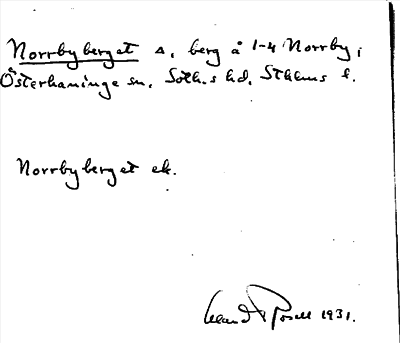 Norrbyberget △, berg å 1-4 Norrby i
Österhaninge sn. Soth.s hd. Sthlms l.
Norrbyberget ek.
1931.